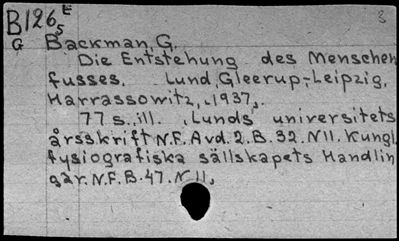 B126 E
5
G Backman, G.
Die Entstehung des Menschen
fusses. Lund, Gleerup-Leipzig,
Harrassowitz, 1937.
77 s. ill. Lunds universitets
årsskrift N.F. Avd. 2. B. 32. N 11. Kungl.
fysiografiska sällskapets Handlin
gar. N.F. B. 47. N 11.